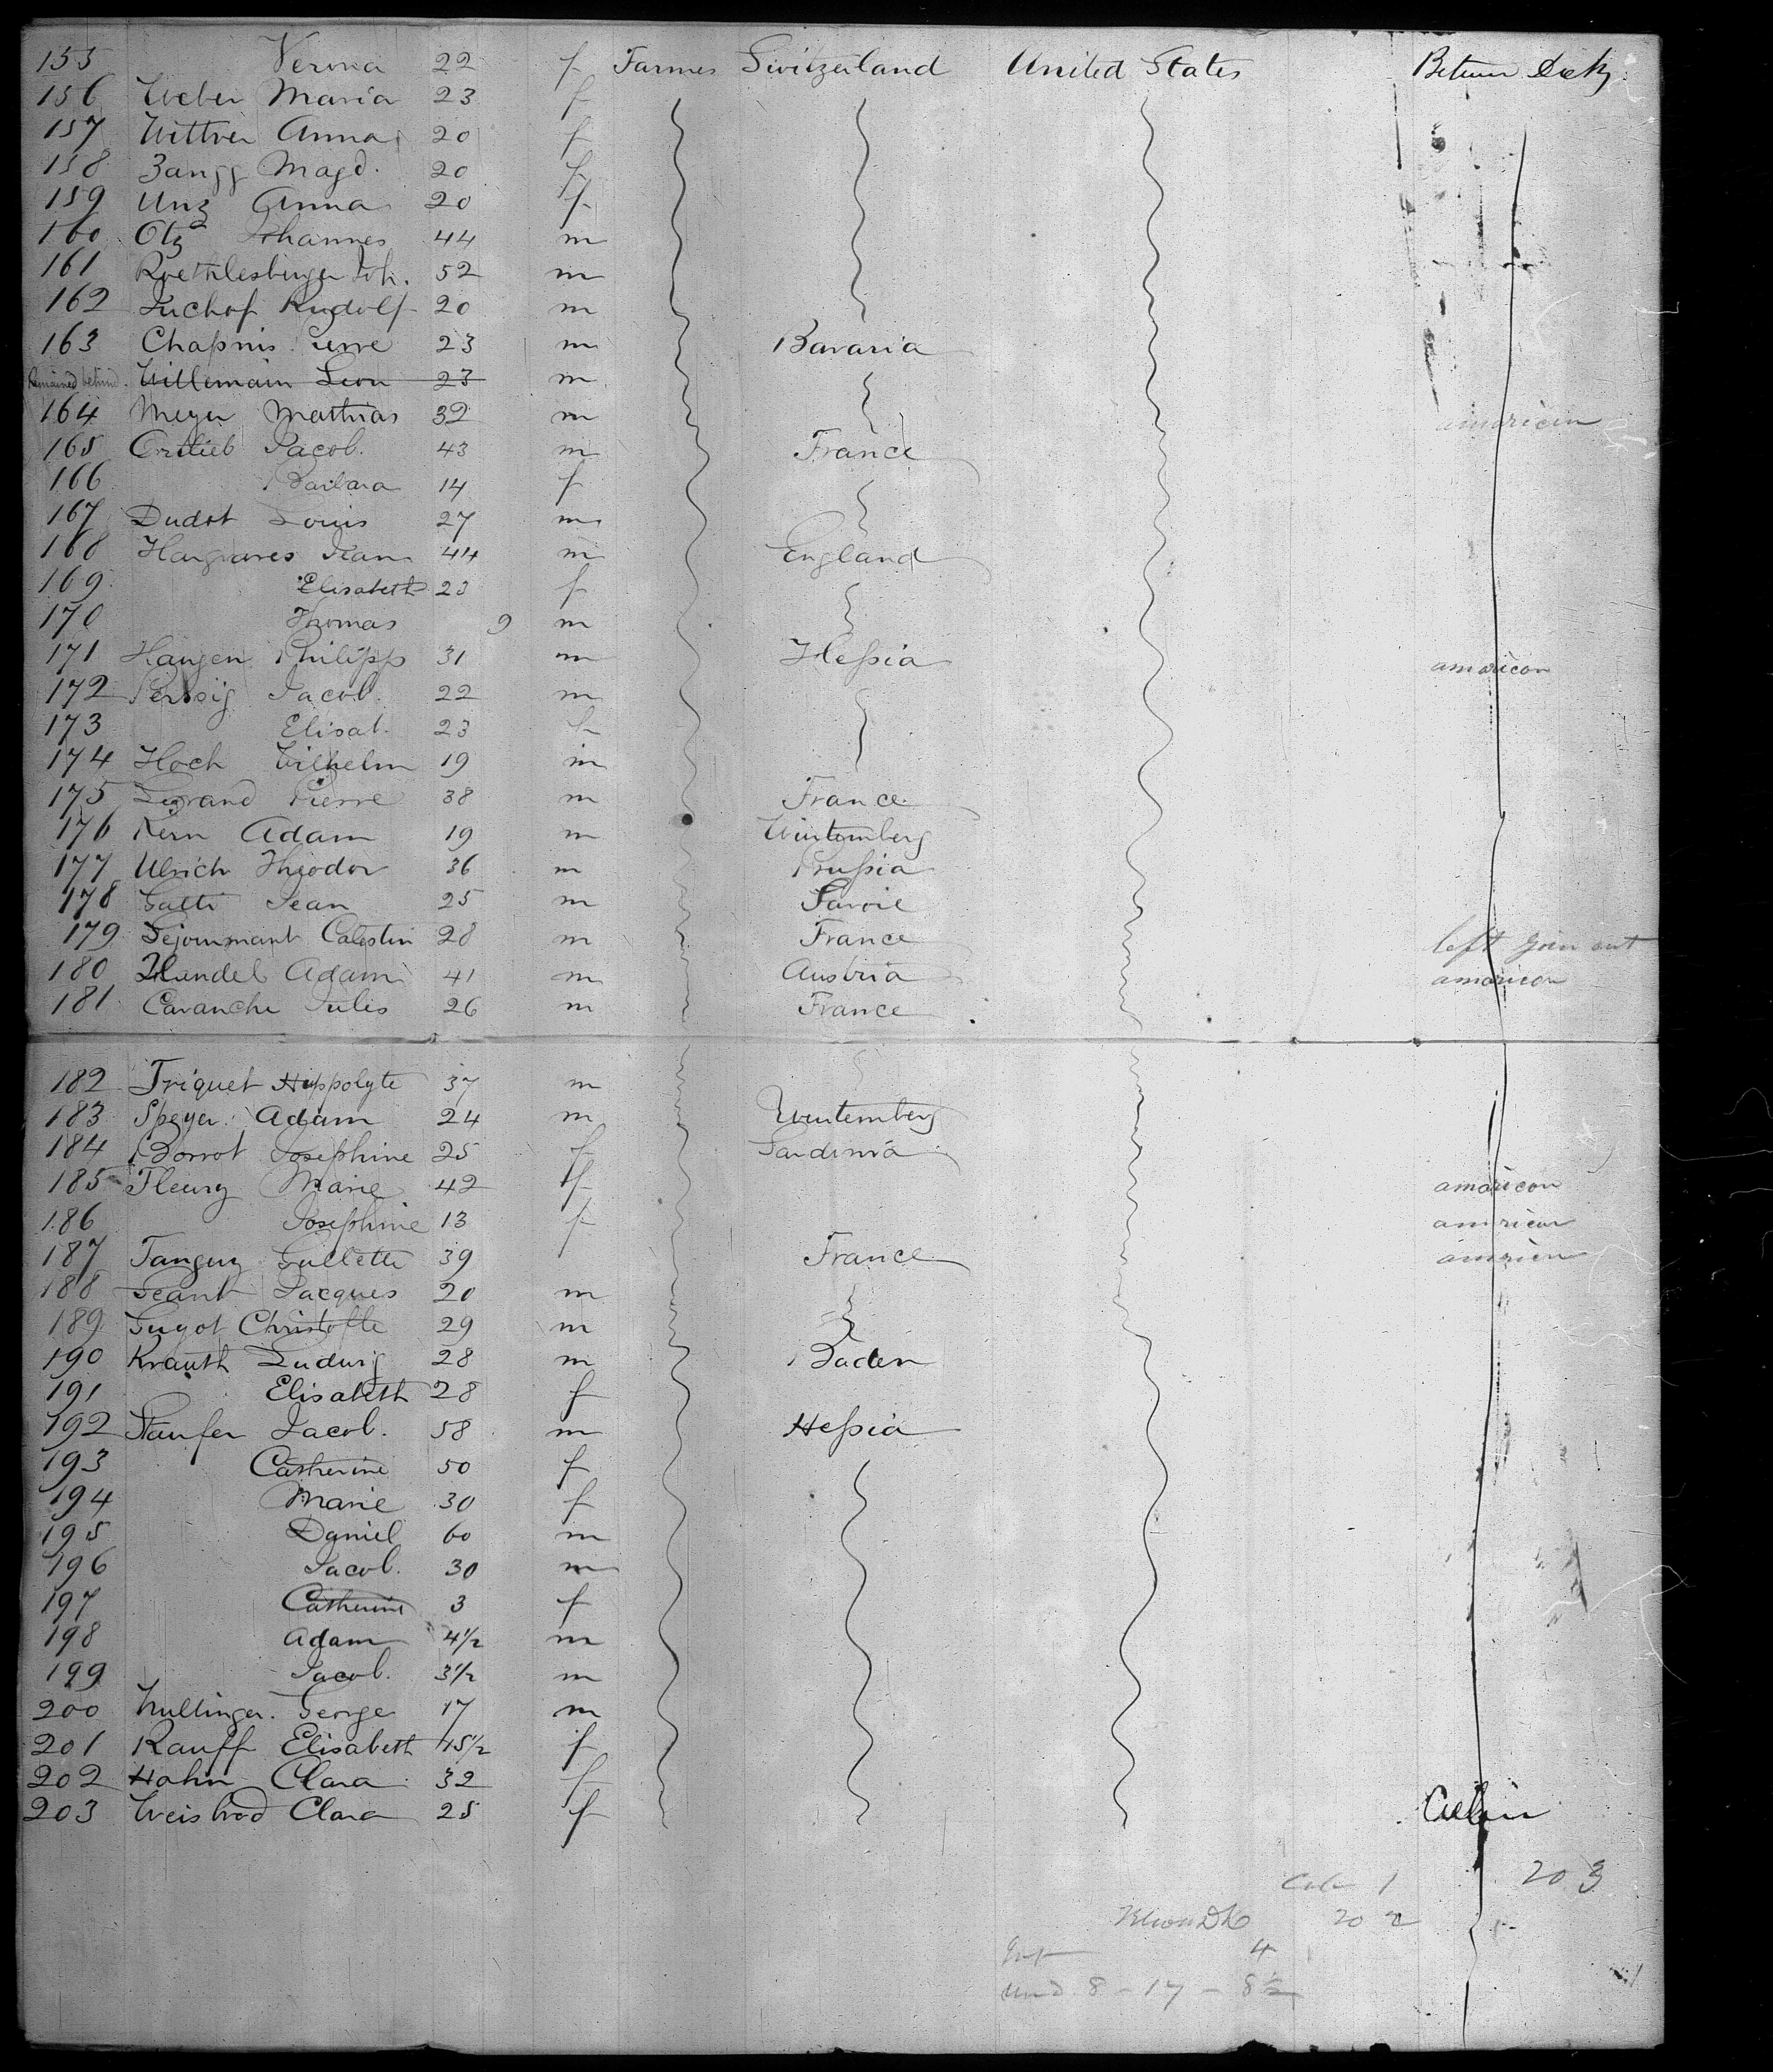 155 Verena 22 f Farmer Switzerland United States Between Decks
156 Weber Maria 23 f
157 Wittwer Anna 20 f
158 Zangg Magd. 20 f
159 Unz Anna 20 f
160 Otz Johannes 44 m
161 Roethlesberger Joh. 52 m
162 Fuchof Rudolf 20 m
163 Chapuis Pierre 23 m Bavaria
Remained behind. Willemain Leon 23 m
164 Meyer Mathias 32 m american
165 Ortlieb Jacob. 43 m France
166 Barbara 14 f
167 Dudot Louis 27 m
168 Hargraves Jean 44 m England
169 Elisabeth 23 f
170 Thomas 9 m
171 Haugen Philipp 31 m Hessia american
172 Jacob. 22 m
173 Elisab. 23 f
174 Hoch Wilhelm 19 m
175 Legrand Pierre 38 m France
176 Kern Adam 19 m Würtemberg
177 Ulrich Theodor 36 m Prussia
178 Galti Jean 25 m Savoie
179 Sejournant Celestin 28 m France left
180 Handel Adam 41 m Austria american
181 Cavanche Jules 26 m France
182 Triquet Hippolyte 37 m
183 Speyer Adam 24 m Würtemberg
184 Borrot Josephine 25 f Sardinia
185 Fleury Marie 42 f american
186 Josephine 13 f american
187 Tanguy Guilette 39 f France american
188 Geant Jacques 20 m
189 Guyot Christofle 29 m
190 Krauth Ludwig 28 m Baden
191 Elisabeth 28 f
192 Staufer Jacob. 58 m Hessia
193 Catherine 50 f
194 Marie 30 f
195 Daniel 60 m
196 Jacob. 30 m
197 Catherine 3 f
198 Adam 4½ m
199 Jacob. 3½ m
200 Nullinger. George 17 m
201 Rauff Elisabeth 45½ f
202 Hahn Clara 32 f
203 Weisbrod Clara 25 f Cabin
1 203
202
4
und. 8 - 17 - 8½